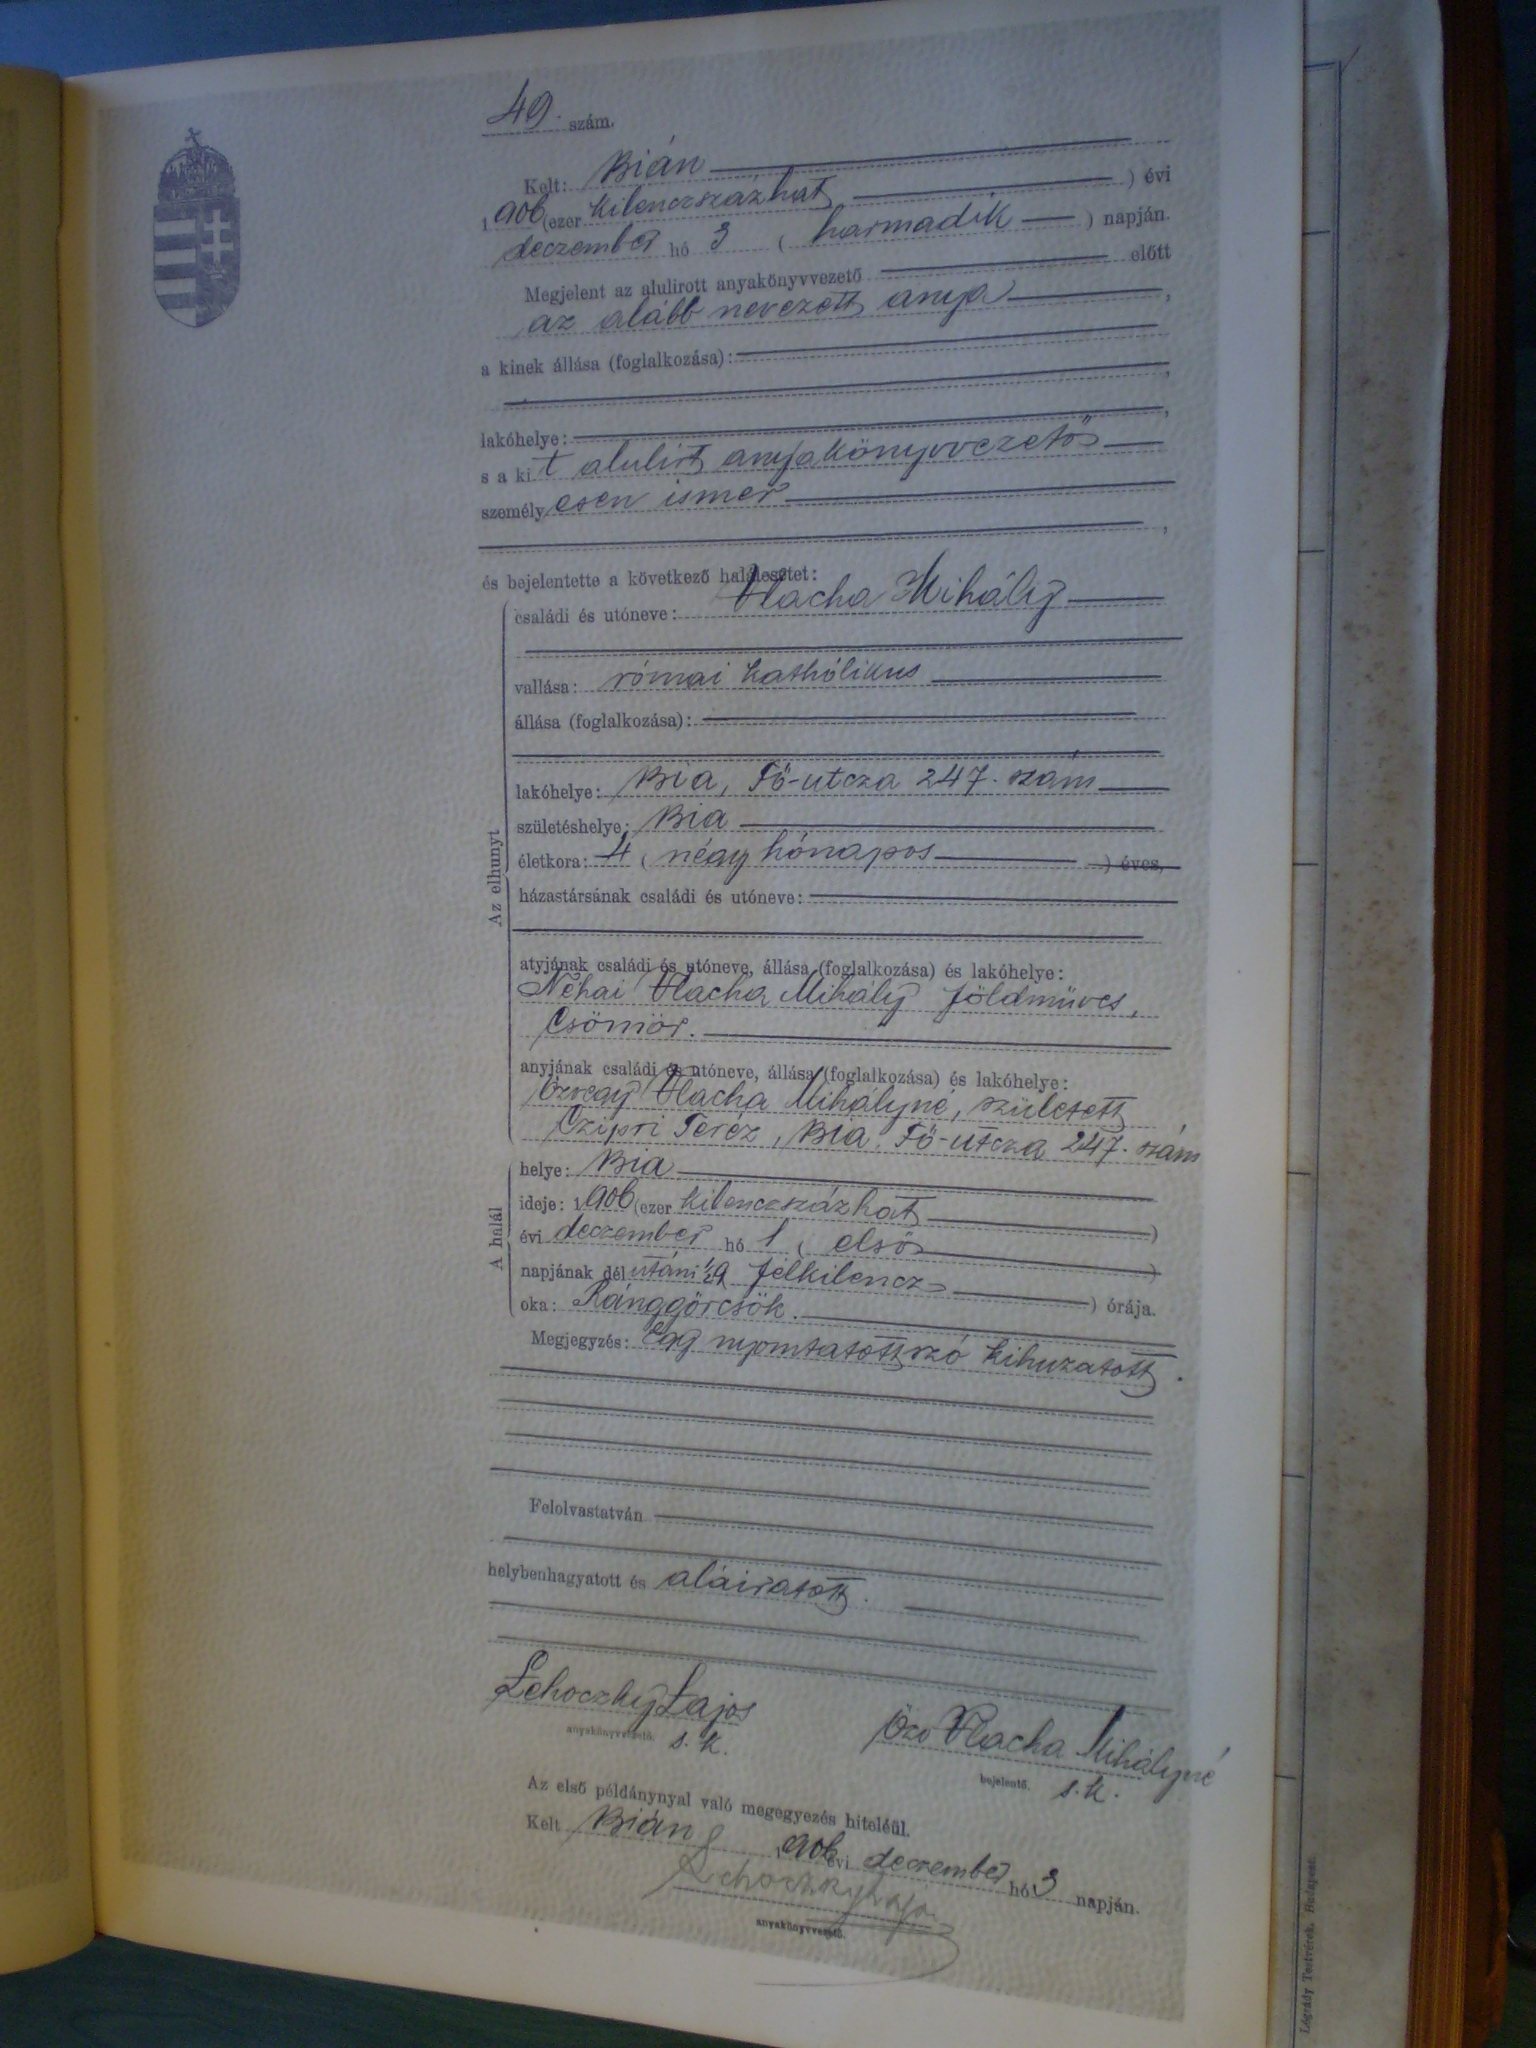 49. szám.
Kelt: Bián
1906 (ezer kilenczszázhat ) évi
deczember hó 3 ( harmadik ) napján.
Megjelent az alulirott anyakönyvvezető előtt
az alább nevezett anya,
a kinek állása (foglalkozása):
,
lakóhelye: ,
s a kit alulirt anyakönyvvezető
személyesen ismer
,
és bejelentette a következő halálesetet:
Az elhunyt
családi és utóneve: Vlacha Mihály
vallása: római katholikus
állása (foglalkozása):
lakóhelye: Bia, Fő-utcza 247. szám
születéshelye: Bia
életkora: 4 ( négy hónapos ) éves,
házastársának családi és utóneve:
atyjának családi és utóneve, állása (foglalkozása) és lakóhelye:
Néhai Vlacha Mihály földműves,
Csömör.
anyjának családi és utóneve, állása (foglalkozása) és lakóhelye:
Özvegy Vlacha Mihályné, született
Czipri Teréz, Bia, Fő-utcza 247. szám
A halál
helye: Bia
ideje: 1906 (ezer kilenczszázhat )
évi deczember hó 1 ( első )
napjának délutáni ½9 félkilencz ) órája.
oka: Ránggörcsök.
Megjegyzés: Egy nyomtatott szó kihuzatott.
Felolvastatván
helybenhagyatott és aláiratott.
Lehoczky Lajos
anyakönyvvezető. s. k.
Özv Vlacha Mihályné
bejelentő. s. k.
Az első példánynyal való megegyezés hiteléül.
Kelt Bián 1906 évi deczember hó 3 napján.
Lehoczky Lajos
anyakönyvvezető.
Légrády Testvérek, Budapest.